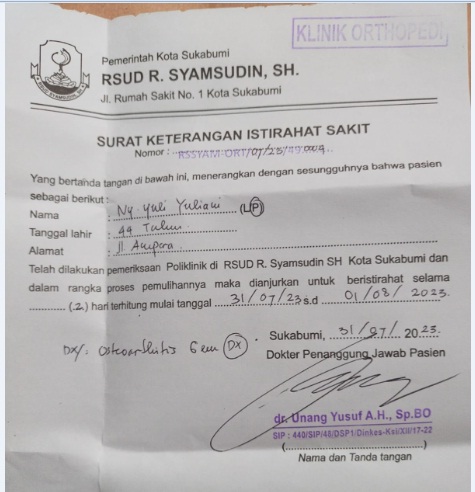 KLINIK ORTHOPEDI
Pemerintah Kota Sukabumi
RSUD R. SYAMSUDIN, SH.
Jl. Rumah Sakit No. 1 Kota Sukabumi
SURAT KETERANGAN ISTIRAHAT SAKIT
Nomor : RSSYAM-ORT/07/23/
Yang bertanda tangan di bawah ini, menerangkan dengan sesungguhnya bahwa pasien
sebagai berikut :
Nama : Ny Yuli Yuliani (L/P)
Tanggal lahir : 49 Tahun
Alamat : Jl Ampera
Telah dilakukan pemeriksaan Poliklinik di RSUD R. Syamsudin SH Kota Sukabumi dan
dalam rangka proses pemulihannya maka dianjurkan untuk beristirahat selama
(2) hari terhitung mulai tanggal 31/07/23 s.d 01/08/2023.
Sukabumi, 31/07/2023.
Dx/: Osteoarthritis Genu (DX)
Dokter Penanggung Jawab Pasien
dr. Unang Yusuf A.H., Sp.BO
SIP : 440/SIP/48/DSP1/Dinkes-Ksi/XII/17-22
(..............................)
Nama dan Tanda tangan